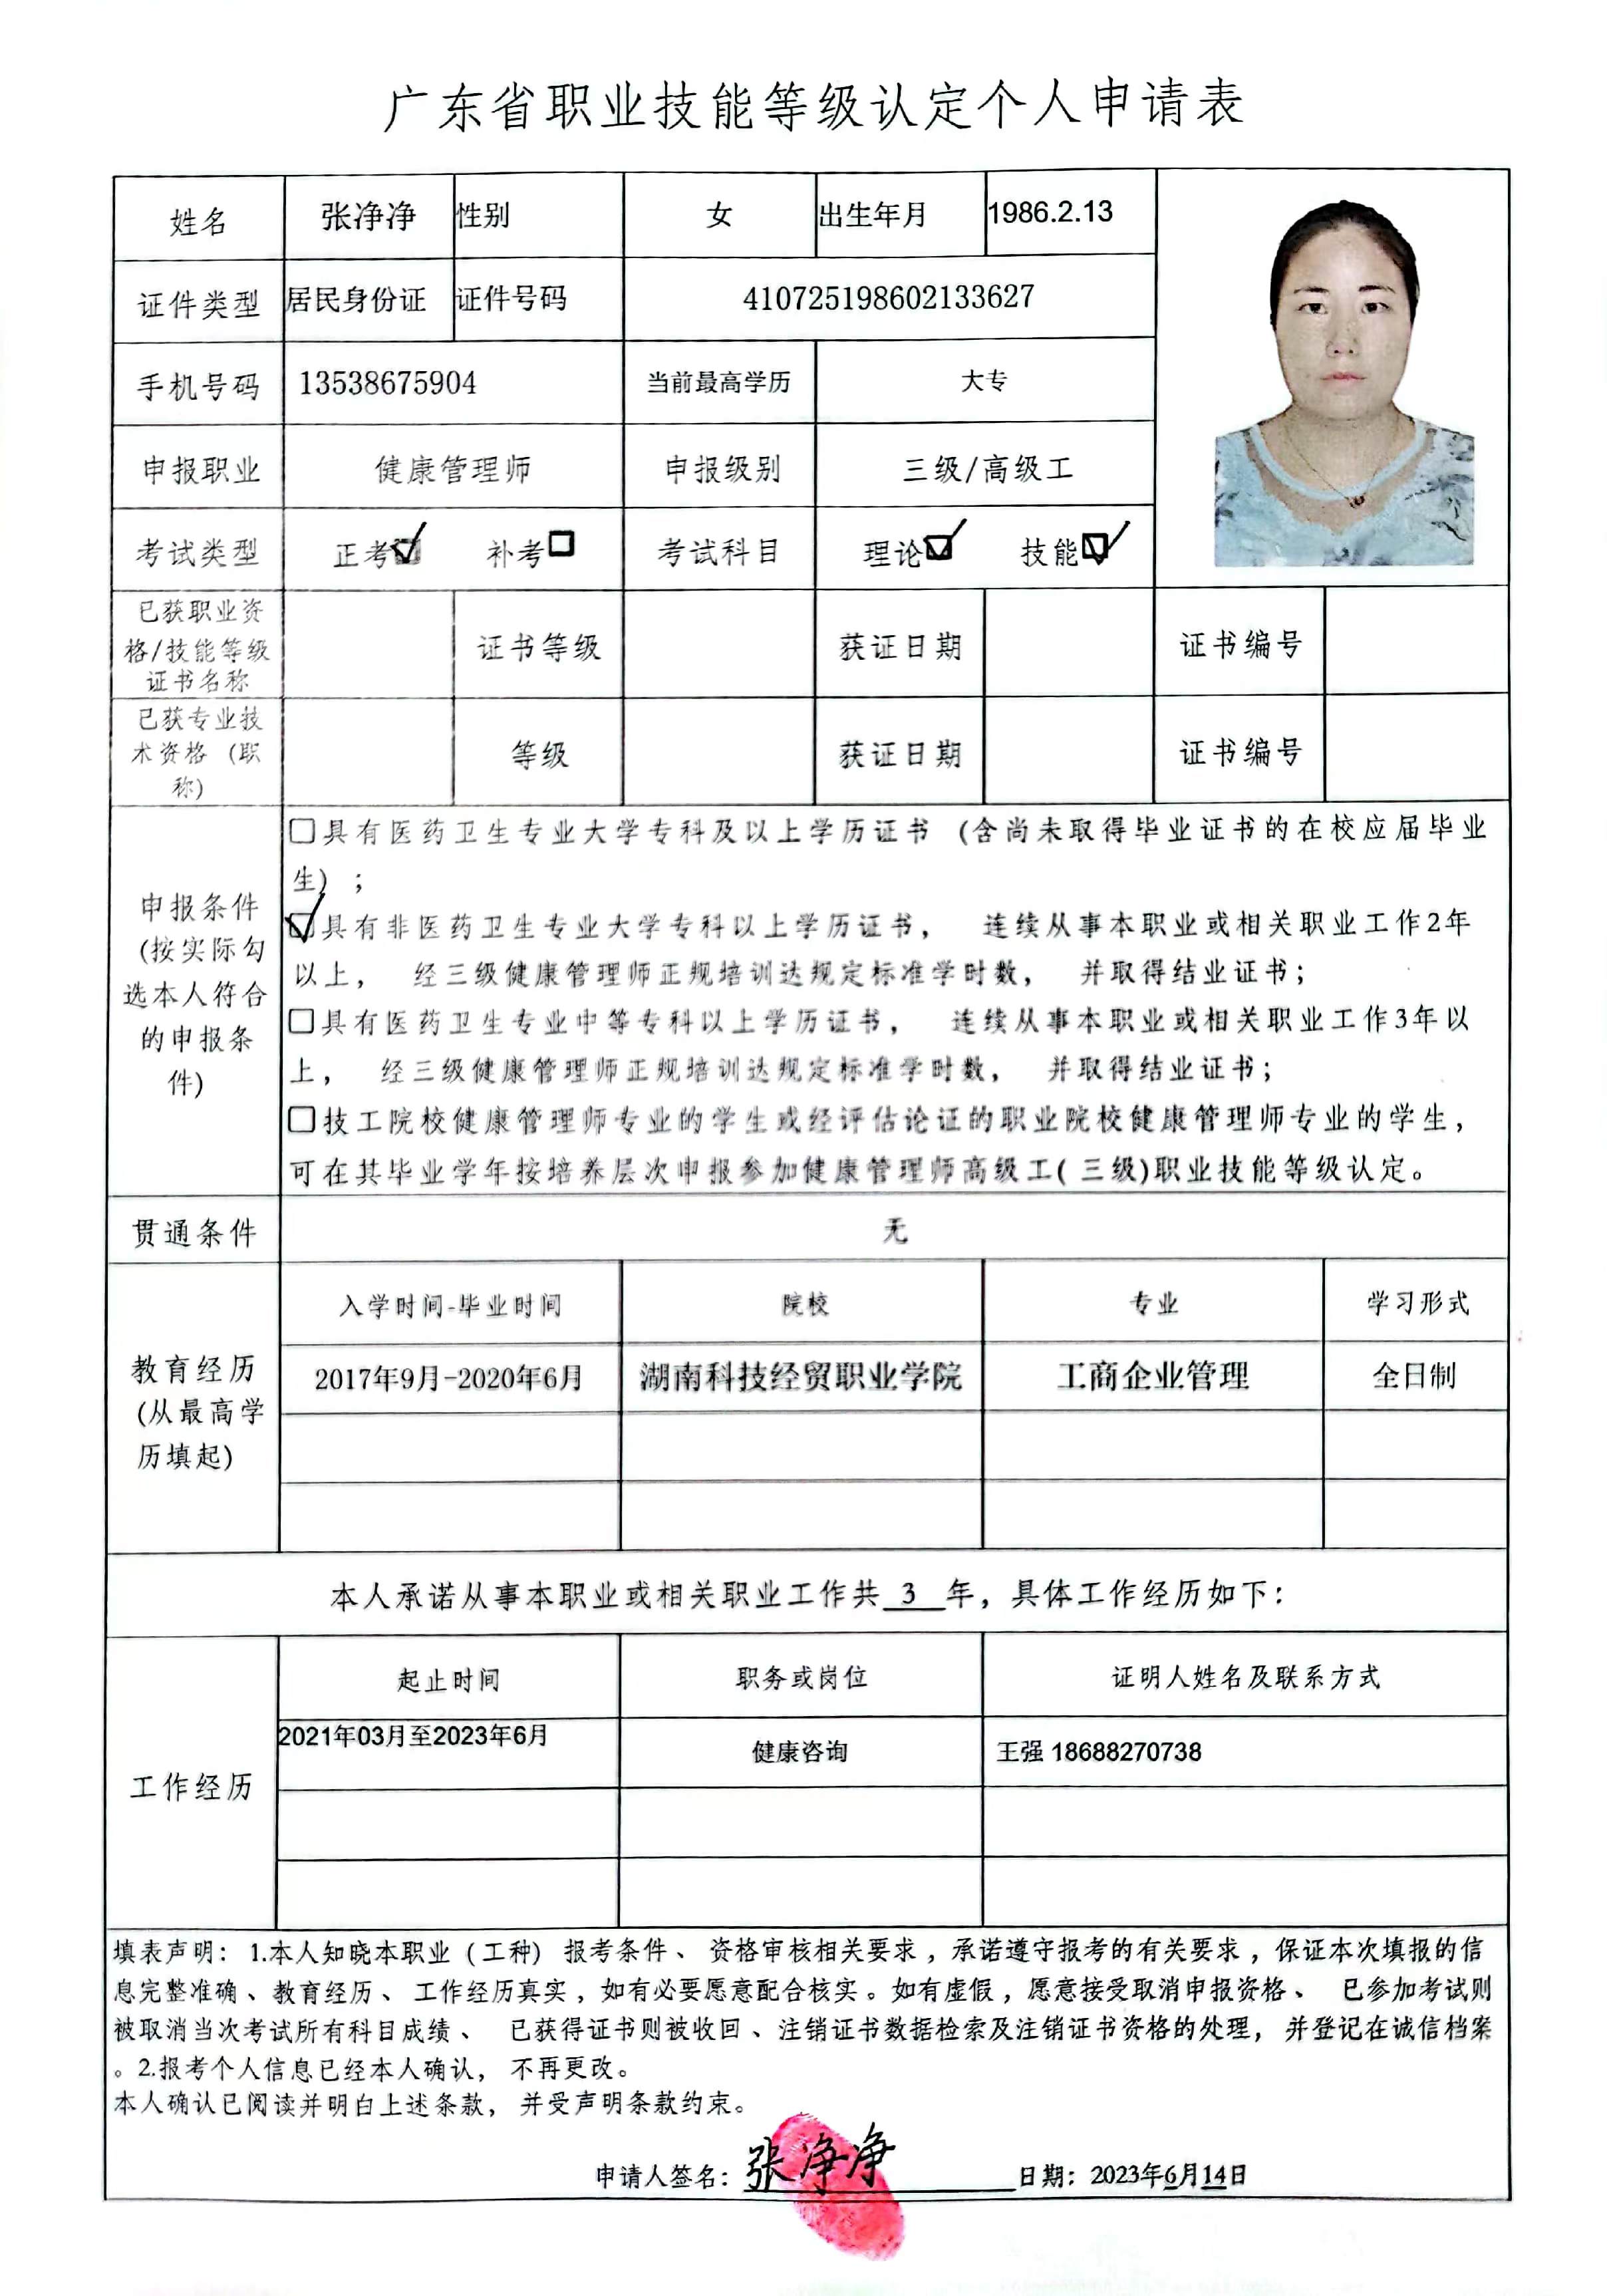 广东省职业技能等级认定个人申请表
姓名 张净净 性别 女 出生年月 1986.2.13
证件类型 居民身份证 证件号码 410725198602133627
手机号码 13538675904 当前最高学历 大专
申报职业 健康管理师 申报级别 三级/高级工
考试类型 正考☑ 补考☐ 考试科目 理论☑ 技能☑
已获职业资
格/技能等级
证书名称
证书等级 获证日期 证书编号
已获专业技
术资格（职
称）
等级 获证日期 证书编号
申报条件
（按实际勾
选本人符合
的申报条
件）
☐具有医药卫生专业大学专科及以上学历证书（含尚未取得毕业证书的在校应届毕业
生）；
☑具有非医药卫生专业大学专科以上学历证书， 连续从事本职业或相关职业工作2年
以上， 经三级健康管理师正规培训达规定标准学时数， 并取得结业证书；
☐具有医药卫生专业中等专科以上学历证书， 连续从事本职业或相关职业工作3年以
上， 经三级健康管理师正规培训达规定标准学时数， 并取得结业证书；
☐技工院校健康管理师专业的学生或经评估论证的职业院校健康管理师专业的学生，
可在其毕业学年按培养层次申报参加健康管理师高级工(三级)职业技能等级认定。
贯通条件 无
教育经历
（从最高学
历填起）
入学时间-毕业时间 院校 专业 学习形式
2017年9月-2020年6月 湖南科技经贸职业学院 工商企业管理 全日制
本人承诺从事本职业或相关职业工作共 3 年，具体工作经历如下：
工作经历
起止时间 职务或岗位 证明人姓名及联系方式
2021年03月至2023年6月 健康咨询 王强 18688270738
填表声明： 1.本人知晓本职业（工种） 报考条件、 资格审核相关要求，承诺遵守报考的有关要求，保证本次填报的信
息完整准确、教育经历、 工作经历真实，如有必要愿意配合核实。如有虚假，愿意接受取消申报资格、 已参加考试则
被取消当次考试所有科目成绩、 已获得证书则被收回、注销证书数据检索及注销证书资格的处理， 并登记在诚信档案
。2.报考个人信息已经本人确认， 不再更改。
本人确认已阅读并明白上述条款， 并受声明条款约束。
申请人签名：张净净 日期：2023年6月14日